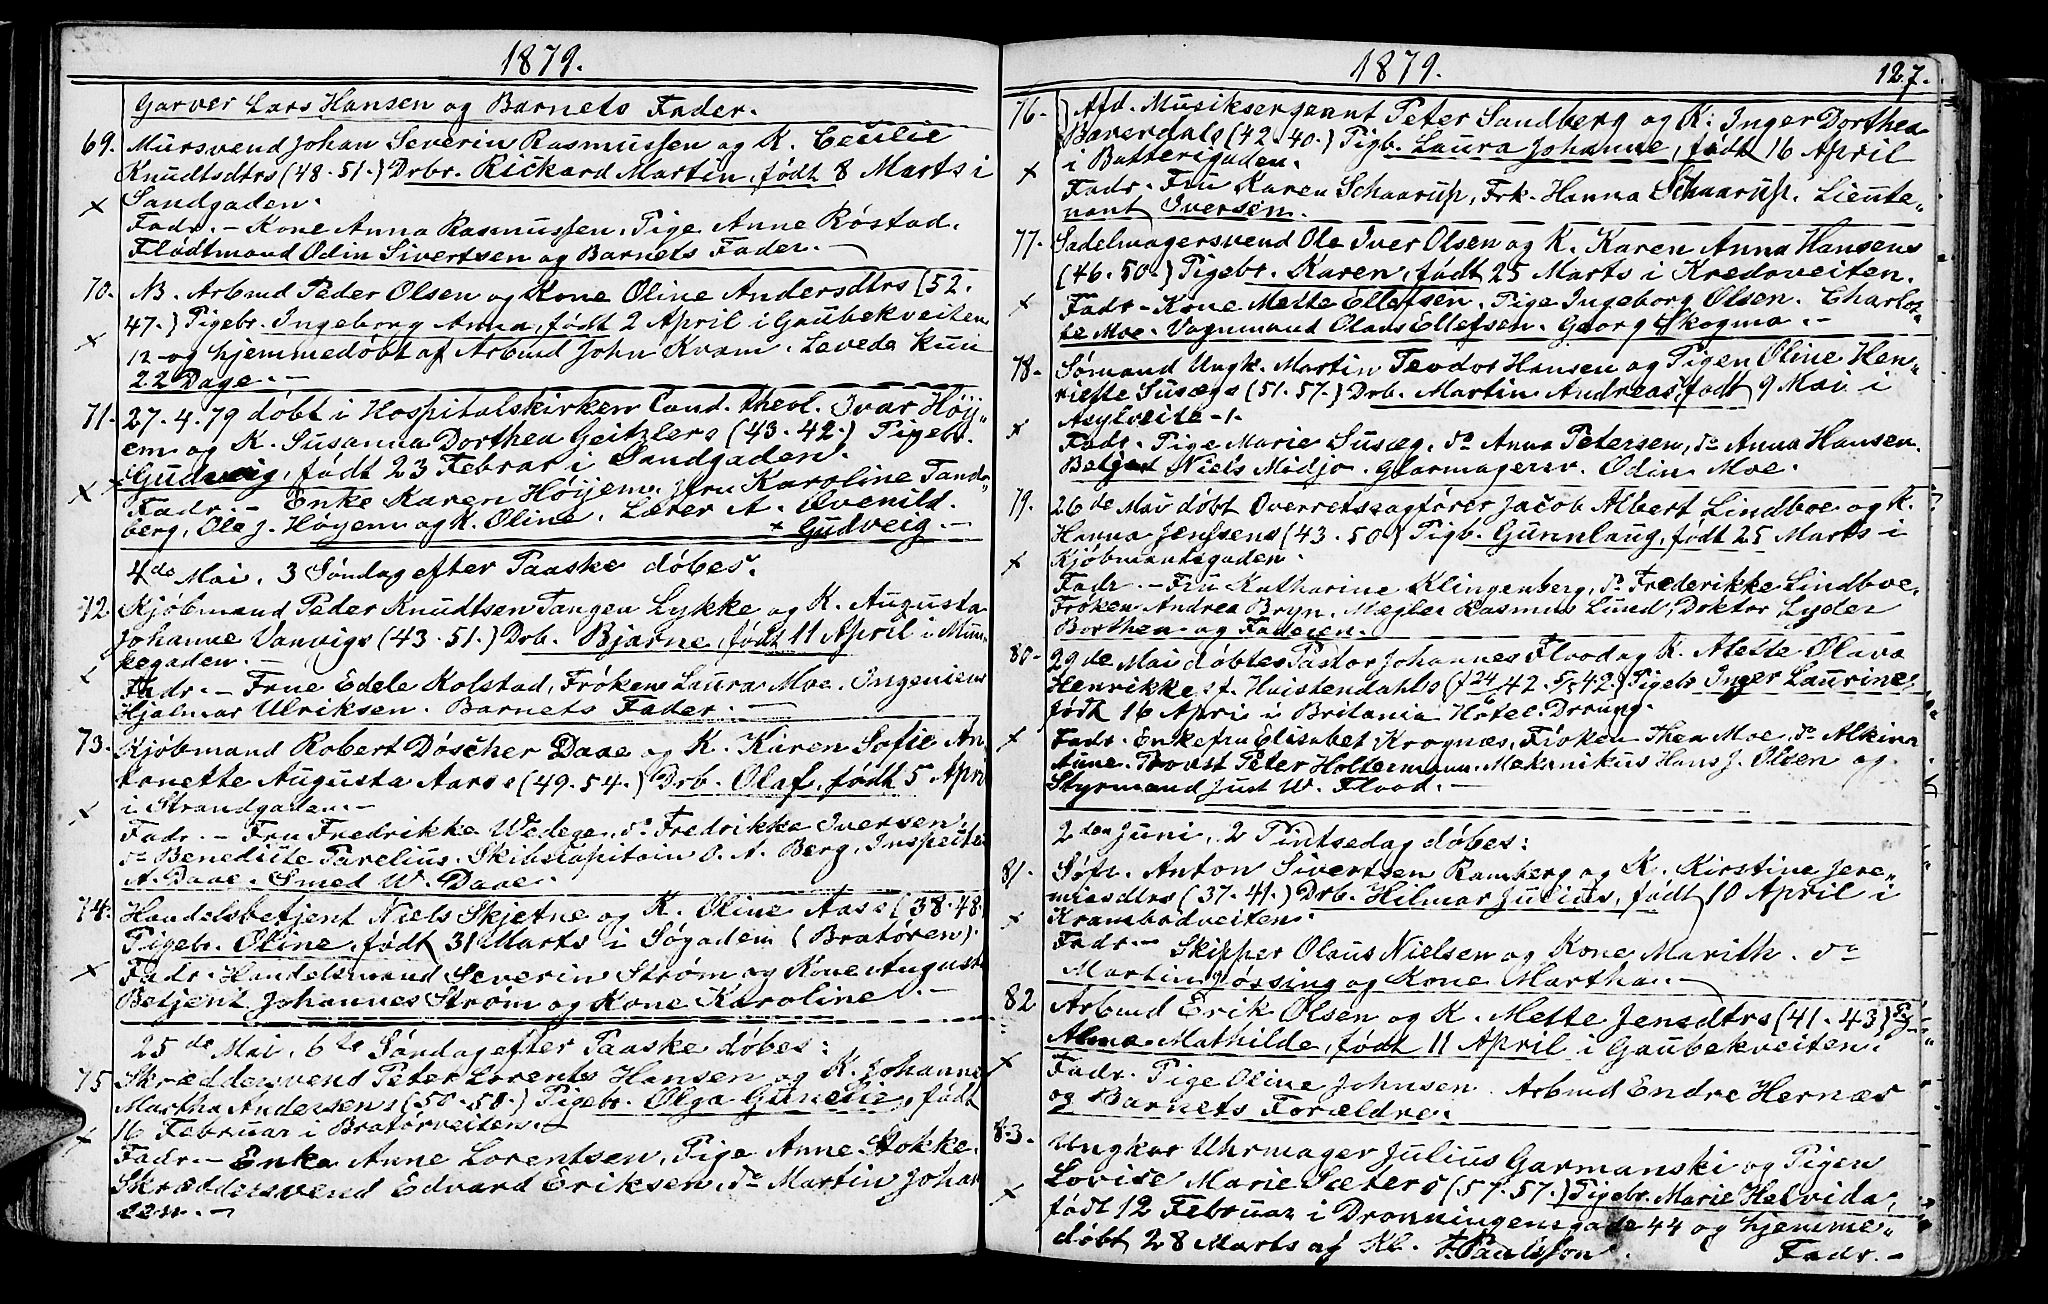 1879.
Garver Lars Hansen og Barnets Fader.
69. Mursvend Johan Severin Rasmussen og K. Cecilie
Knudtsdtrs (48-51.) Drbr. Rickard Martin, født 8 Marts i
Sandgaden.
Fadr. - Kone Anna Rasmussen. Pige Anne Röstad.
Flødtmand Odin Sivertsen og Barnets Fader. -
70. NB. Arbmd Peder Olsen og Kone Oline Andersdtrs (52.
47.) Pigebr. Ingeborg Anna, født 2 April i Gaubekveiten
12 og hjemmedøbt af Arbmd John Kvam. Levede kun
22 Dage. -
71. 27-4-79 døbt i Hospitalskirken Cand. theol. Ivar Höij,,
em og K. Susanna Dorthea Geitzlers (43-42.) Pigebr.
Gudveig, født 23 Februar i Sandgaden.
Fadr. - Enke Karen Höyem. Fru Karoline Tand,,
berg, Ole J. Höyem og K. Oline. Lærer A. Qvenild.
+ Gudveig. -
4de Mai. 3 Søndag efter Paaske døbes.
72. Kjøbmand Peder Knudtsen Tangen Lykke og K. Augusta
Johanne Vanvigs (43-51.) Drb. Bjarne, født 11 April i Mun,,
kegaden. -
Fadr. - Frue Edele Kolstad, Frøken Laura Moe. Ingeniør
Hjalmar Ulriksen. Barnets Fader. -
73. Kjøbmand Robert Döscher Daae og K. Karen Sofie An,,
tonette Augusta Aars (49-54.) Drb. Olaf, født 5 April
i Strandgaden. -
Fadr. - Fru Fredrikke Wedege, do Fredrikke Iversen,
do Benedicte Parelius. Skibskapitain O. A. Berg, Inspektør
A. Daae. Smed W. Daae.
74. Handelsbetjent Niels Skjetne og K. Oline Aass (38-48)
Pigebr. Oline, født 31 Marts i Søgaden (Bratøren).
Fadr. Handelsmand Severin Strøm og Kone Auguste
Betjent Johannes Strøm og Kone Karoline. -
25de Mai, 6te Søndag efter Paaske døbes:
75 Skræddersvend Peter Lorents Hansen og K. Johanne
Martha Andersens (50-50.) Pigebr. Olga Gunelie, født
16 Februar i Bratørveiten. -
Fadr. - Enke Anne Lorentsen, Pige Anne Stokke.
Skræddersvend Edvard Eriksen, do Martin Johan
sen. -
1879. 127.
76. Afd. Musiksergeant Peter Sandberg og K. Inger Dorthea
Bæverdals (42-40.) Pigb. Laura Johanne, født 16 April
i Batterigaden.
Fadr. Fru Karen Schaarup, Frk. Hanna Schaarup. Lieute,,
nant Iversen.
77. Sadelmagersvend Ole Iver Olsen og K. Karen Anna Hansens
(46-50.) Pigebr. Karen, født 25 Marts i Kredoveiten.
Fadr - Kone Mette Ellefsen. Pige Ingeborg Olsen. Charlot,,
te Moe. Vognmand Olaus Ellefsen. Georg Skogmo. -
78. Sømand Ungk. Martin Teodor Hansen og Pigen Oline Hen,,
riette Susægs (51-57.) Drb. Martin Andreas, født 9 Mai i
Asylveite -1.
Fadr. Pige Marie Susæg, do Anna Petersen, do Anna Hansen.
Betjent Niels Midjo. Glarmagersv. Odin Moe.
79. 26de Mai døbt Overretssagfører Jacob Albert Lindboe og K.
Hanna Jenssens (43-50) Pigb. Gunnlaug, født 25 Marts i
Kjøbmandsgaden.
Fadr. - Fru Katharine Klingenberg, do Frederikke Lindboe.
Frøken Andrea Bryn. Mægler Rasmus Lund, Doktor Lyder
Borthen og Faderen.
80- 29de Mai døbtes Pastor Johannes Flood og K. Mette Olava
Henrikke f. Huistendahls (f 24/6 42. 5/5 42.) Pigebr Inger Laurine,
født 16 April i Britania Hotel. Dronng.
Fadr. Enkefru Elisabet Krognæs, Frøken Thea Moe, do Alkina
Aune. Provst Peter Holtermann. Mekanikus Hans J. Olsen og
Styrmand Just W. Flood. -
2den Juni, 2 Pintsedag døbes:
81. Søfr. Anton Sivertsen Ramberg og K. Kirstine Jere,,
miasdtrs (37-41.) Drb. Hilmar Julius, født 10 April i
Krambodveiten.
Fadr. - Skipper Olaus Nielsen og Kone Marith. do
Martin Jøssing og Kone Martha. -
82 Arbmd Erik Olsen og K. Mette Jensdtrs (41-43) Pg.
Alma Mathilde, født 11 April i Gaubekveiten.
Fadr. Pige Oline Johnsen. Arbmd Endre Hernæs
og Barnets Forældre.
83. Ungkar Uhrmager Julius Garmanski og Pigen
Lovise Marie Sæters (57-57.) Pigebr. Marie Helvida,
født 12 Februar i Dronningensgade 44 og hjemme,,
døbt 28 Marts af Kl. F. Paulsson. Fadr. -